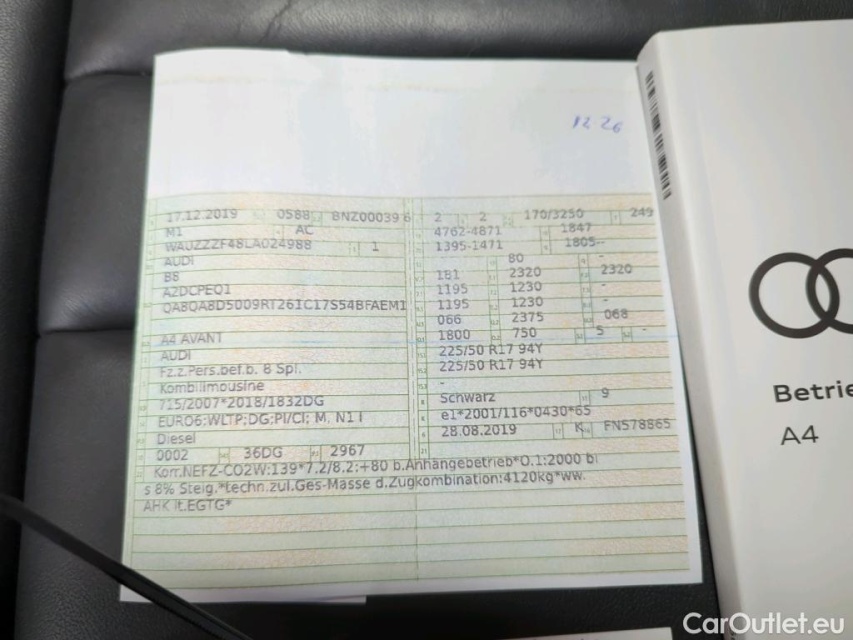 12 26
17.12.2019 0588 BNZ00039 6 2 2 170/3250 249
M1 AC 4762-4871 1847
WAUZZZF48LA024988 1 1395-1471 1805--
AUDI 80 -
B8 181 2320 2320
A2DCPEQ1 1195 1230 -
QA8QA8D5009RT261C17S54BFAEM1 1195 1230 -
066 2375 068
A4 AVANT 1800 750 5 -
AUDI 225/50 R17 94Y
Fz.z.Pers.bef.b. 8 Spl. 225/50 R17 94Y
Kombilimousine -
715/2007*2018/1832DG Schwarz 9
EURO6;WLTP;DG;PI/CI; M, N1 I e1*2001/116*0430*65
Diesel 28.08.2019 K FN578865
0002 36DG 2967
Korr.NEFZ-CO2W:139*7.2/8.2:+80 b.Anhängebetrieb*O.1:2000 bi
s 8% Steig.*techn.zul.Ges-Masse d.Zugkombination:4120kg*ww.
AHK lt.EGTG*
Betrie
A4
CarOutlet.eu